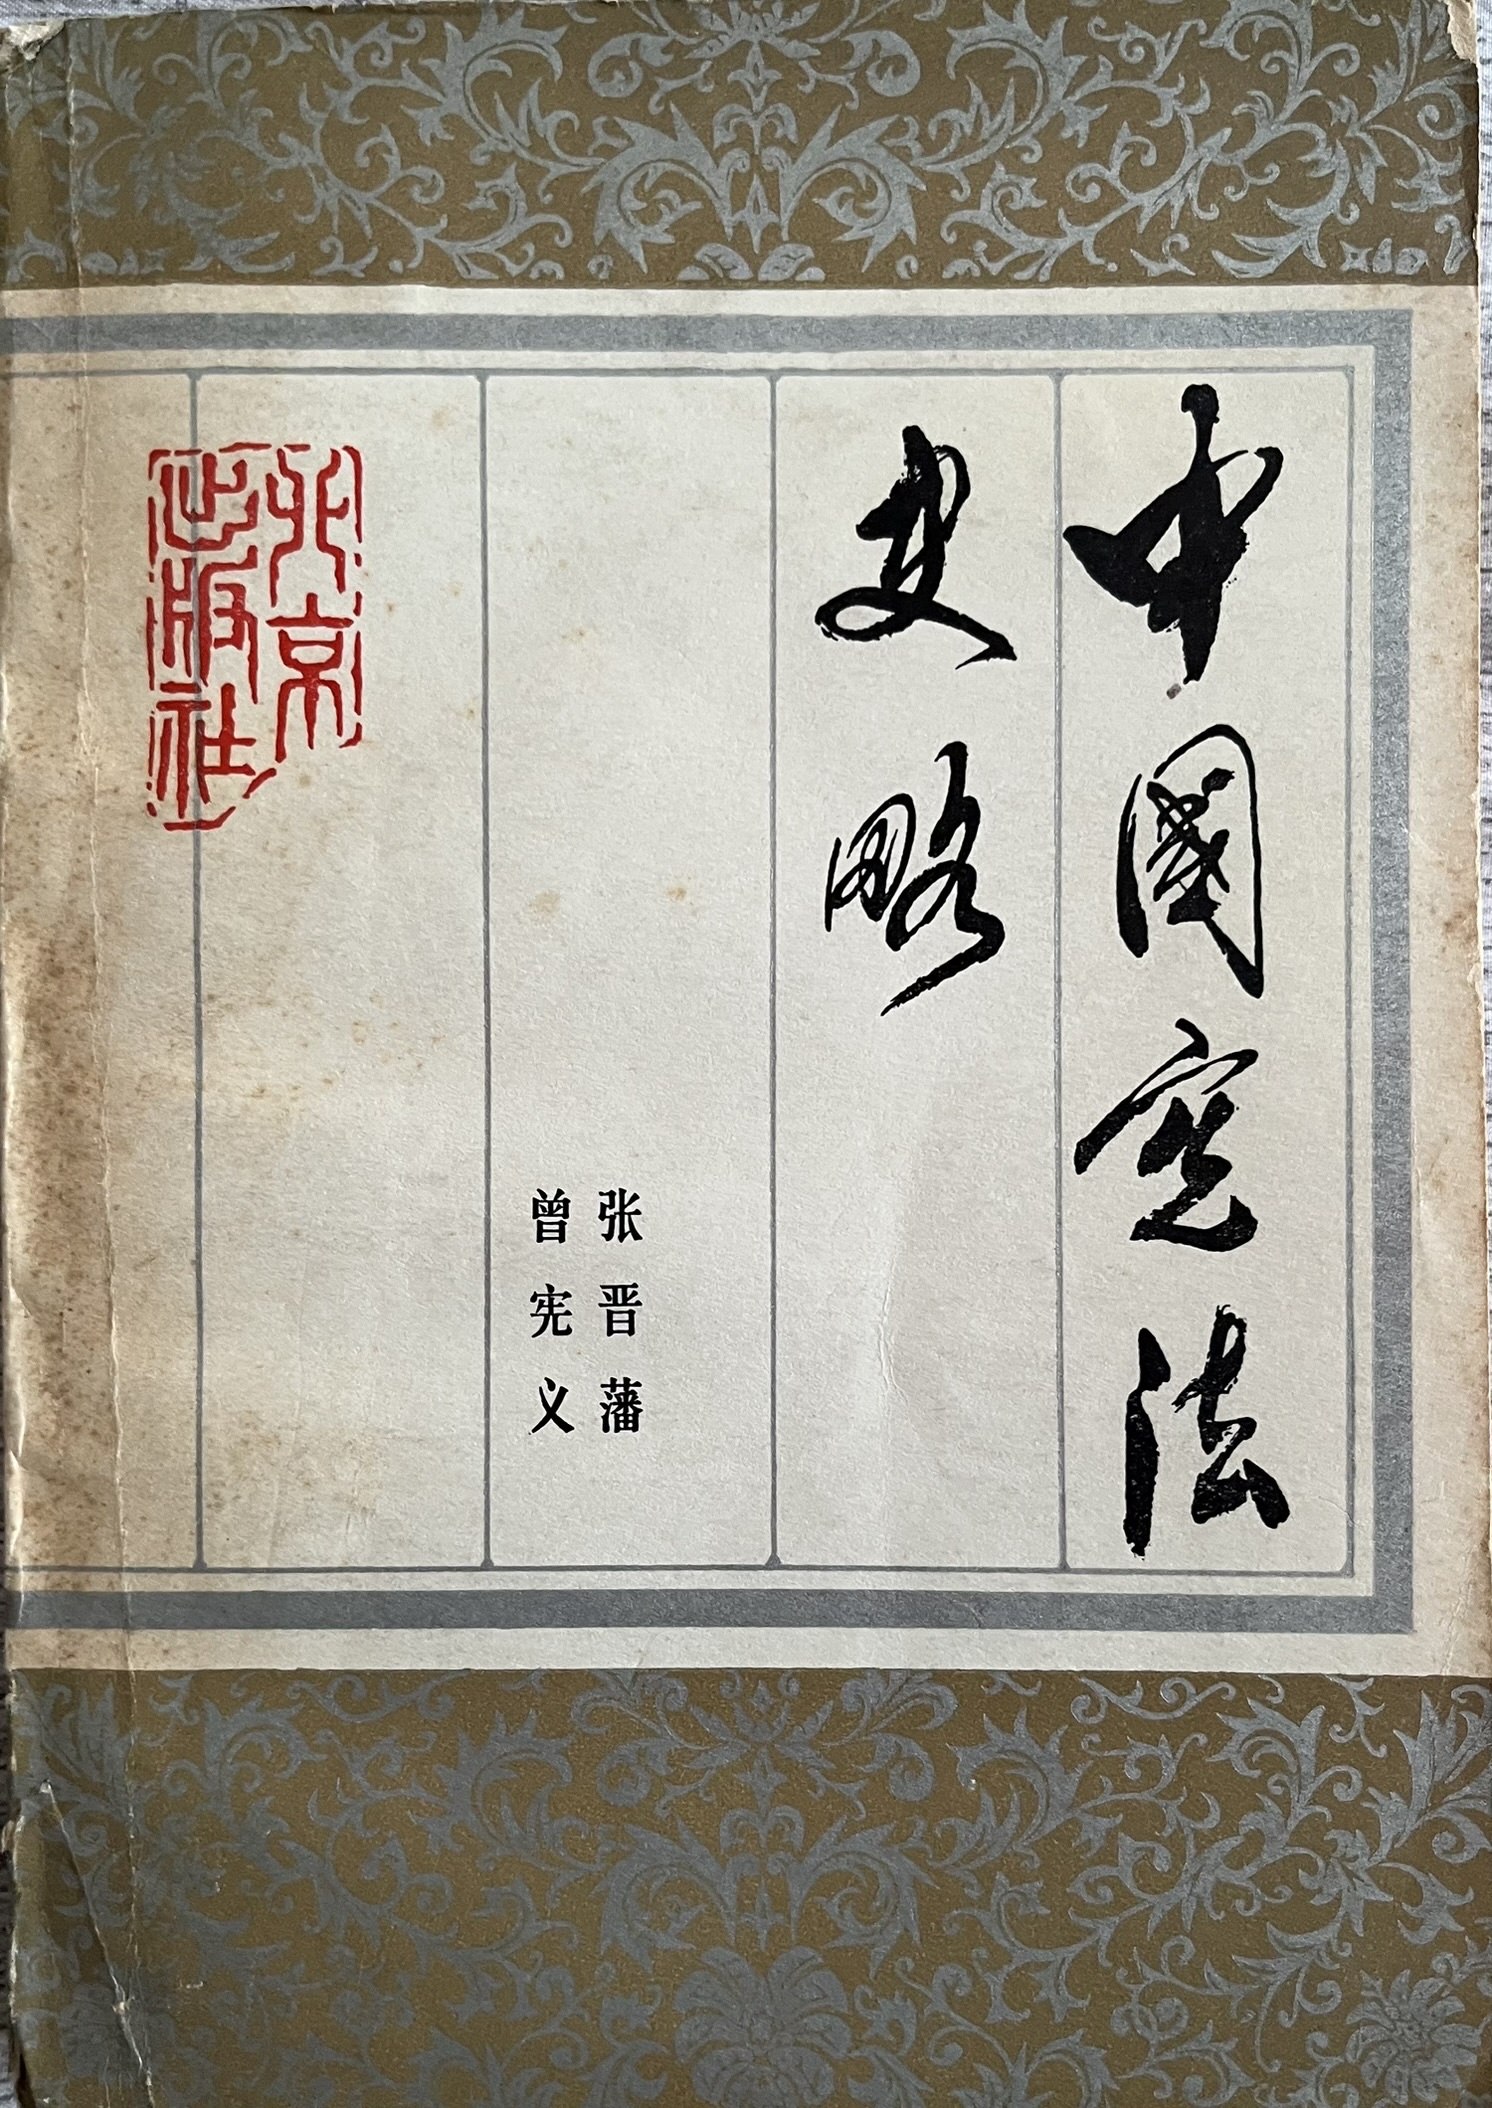 中國宪法
史略
张晋藩
曾宪义
北京
出版社